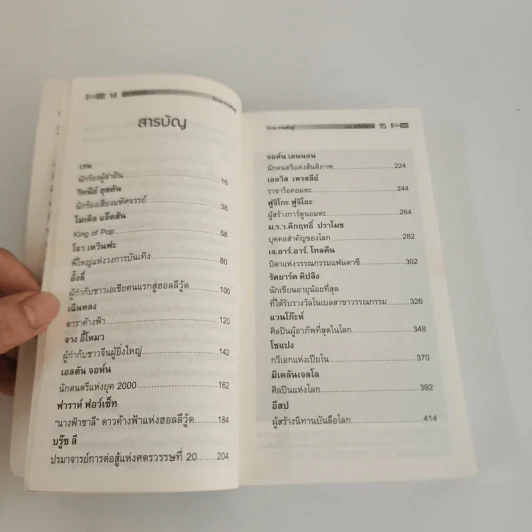 สารบัญ
เรน
นักร้องผู้ล่าฝัน 16
วิทนีย์ ฮุสตัน
นักร้องเสียงมหัศจรรย์ 36
ไมเคิล แจ็คสัน
King of Pop 58
โฮว เหวินฟะ
พี่ใหญ่แห่งวงการบันเทิง 80
อั้งลี่
ผู้กำกับชาวเอเชียคนแรกสู่ฮอลลีวู้ด 100
เฉินหลง
ดาราค้างฟ้า 120
จาง อี้โหมว
ผู้กำกับชาวจีนผู้ยิ่งใหญ่ 142
เอลตัน จอห์น
นักดนตรีแห่งยุค 2000 162
ฟาร่าห์ ฟอว์เซ็ท
"นางฟ้าชาลี" ดาวค้างฟ้าแห่งฮอลลีวู้ด 184
บรู๊ซ ลี
ปรมาจารย์การต่อสู้แห่งศตวรรษที่ 20 204
15
จอห์น เลนนอน
นักดนตรีแห่งสันติภาพ 224
เอลวิส เพรสลีย์
ราชาร็อคอมตะ 244
ฟูจิโกะ ฟูจิโอะ
ผู้สร้างการ์ตูนอมตะ 264
ม.ร.ว.คึกฤทธิ์ ปราโมช
บุคคลสำคัญของโลก 282
เจ.อาร์.อาร์. โทลคีน
บิดาแห่งวรรณกรรมแฟนตาซี 302
รัดยาร์ด คิปลิง
นักเขียนอายุน้อยที่สุด
ที่ได้รับรางวัลโนเบลสาขาวรรณกรรม 326
แวนโก๊ะห์
ศิลปินผู้อาภัพที่สุดในโลก 348
โชแปง
กวีเอกแห่งเปียโน 370
มิเคลันเจลโล
ศิลปินแห่งโลก 392
อีสป
ผู้สร้างนิทานบันลือโลก 414